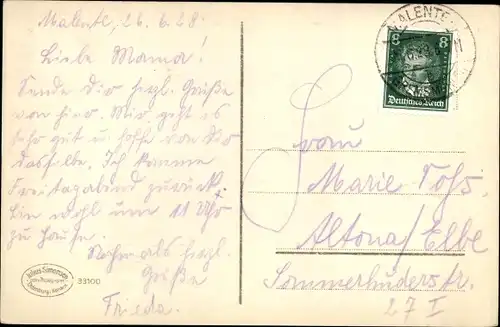 Malente, 26.6.28.
Liebe Mama!
Sende Dir herzl. Grüße
von hier. Mir geht es
sehr gut u. hoffe von Dir
dasselbe. Ich komme
Freitagabend zurück
bin wohl um 11 Uhr
zu Hause.
Nochmals herzl.
Grüße
Frieda.
Julius Simonsen
Oldenburg i. Holstein
33100
MALENTE
8 8
Deutsches Reich
Frau
Marie Tohs
Altona/Elbe
Sommerhuderstr.
27 I